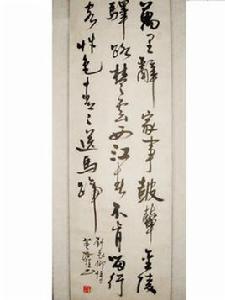 萬里辭家事鼓鼙金陵
驛路楚雲西江春不肯留行
客草色青々送馬蹄
劉長卿詩